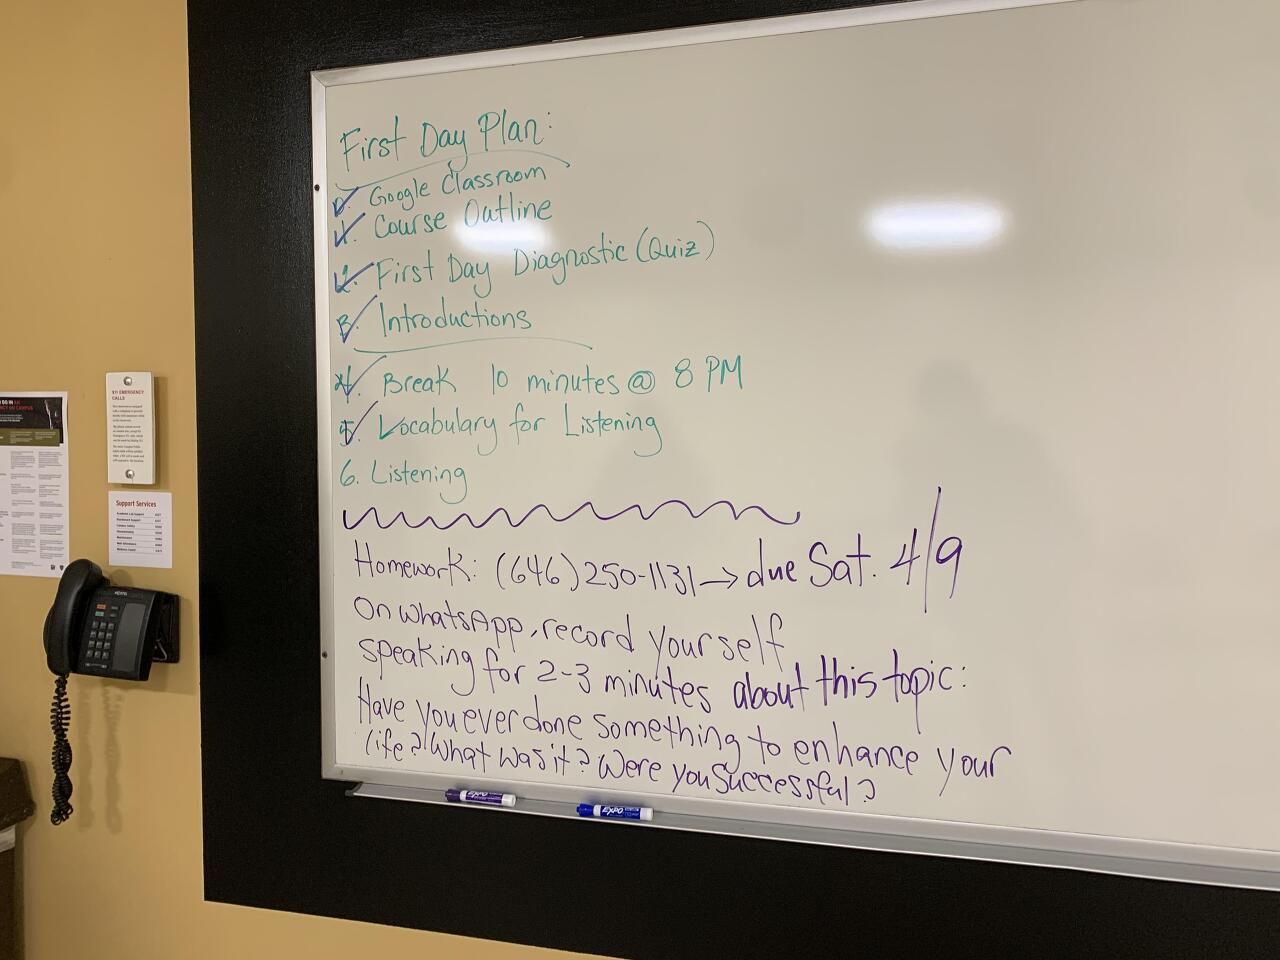 First Day Plan:
0. Google Classroom
1. Course Outline
2. First Day Diagnostic (Quiz)
3. Introductions
4. Break 10 minutes @ 8 PM
5. Vocabulary for Listening
6. Listening
Homework: (646) 250-1131 → due Sat. 4/9
On WhatsApp, record yourself
speaking for 2-3 minutes about this topic:
Have you ever done something to enhance your
life? What was it? Were you successful?
911 EMERGENCY
CALLS
Support Services
EXPO
EXPO